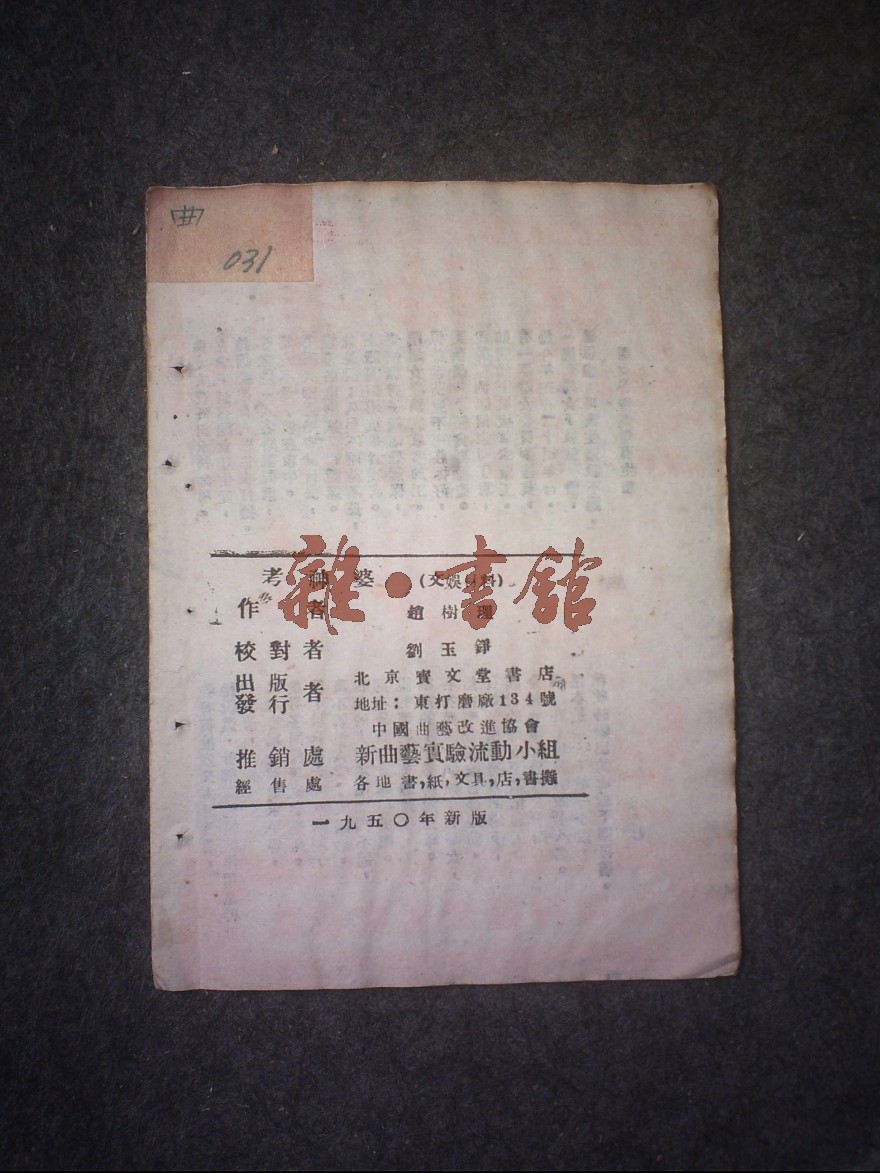 曲
031
考神婆 (文娛材料)
作者 趙樹理
校對者 劉玉錚
出版發行者 北京寶文堂書店
地址：東打磨廠134號
中國曲藝改進協會
推銷處 新曲藝實驗流動小組
經售處 各地書,紙,文具,店,書攤
一九五〇年新版
雜·書館